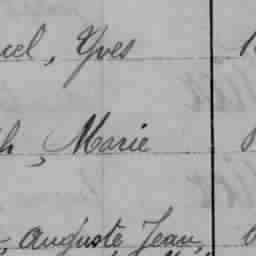 uel, Yves
h, Marie
, Auguste Jean,